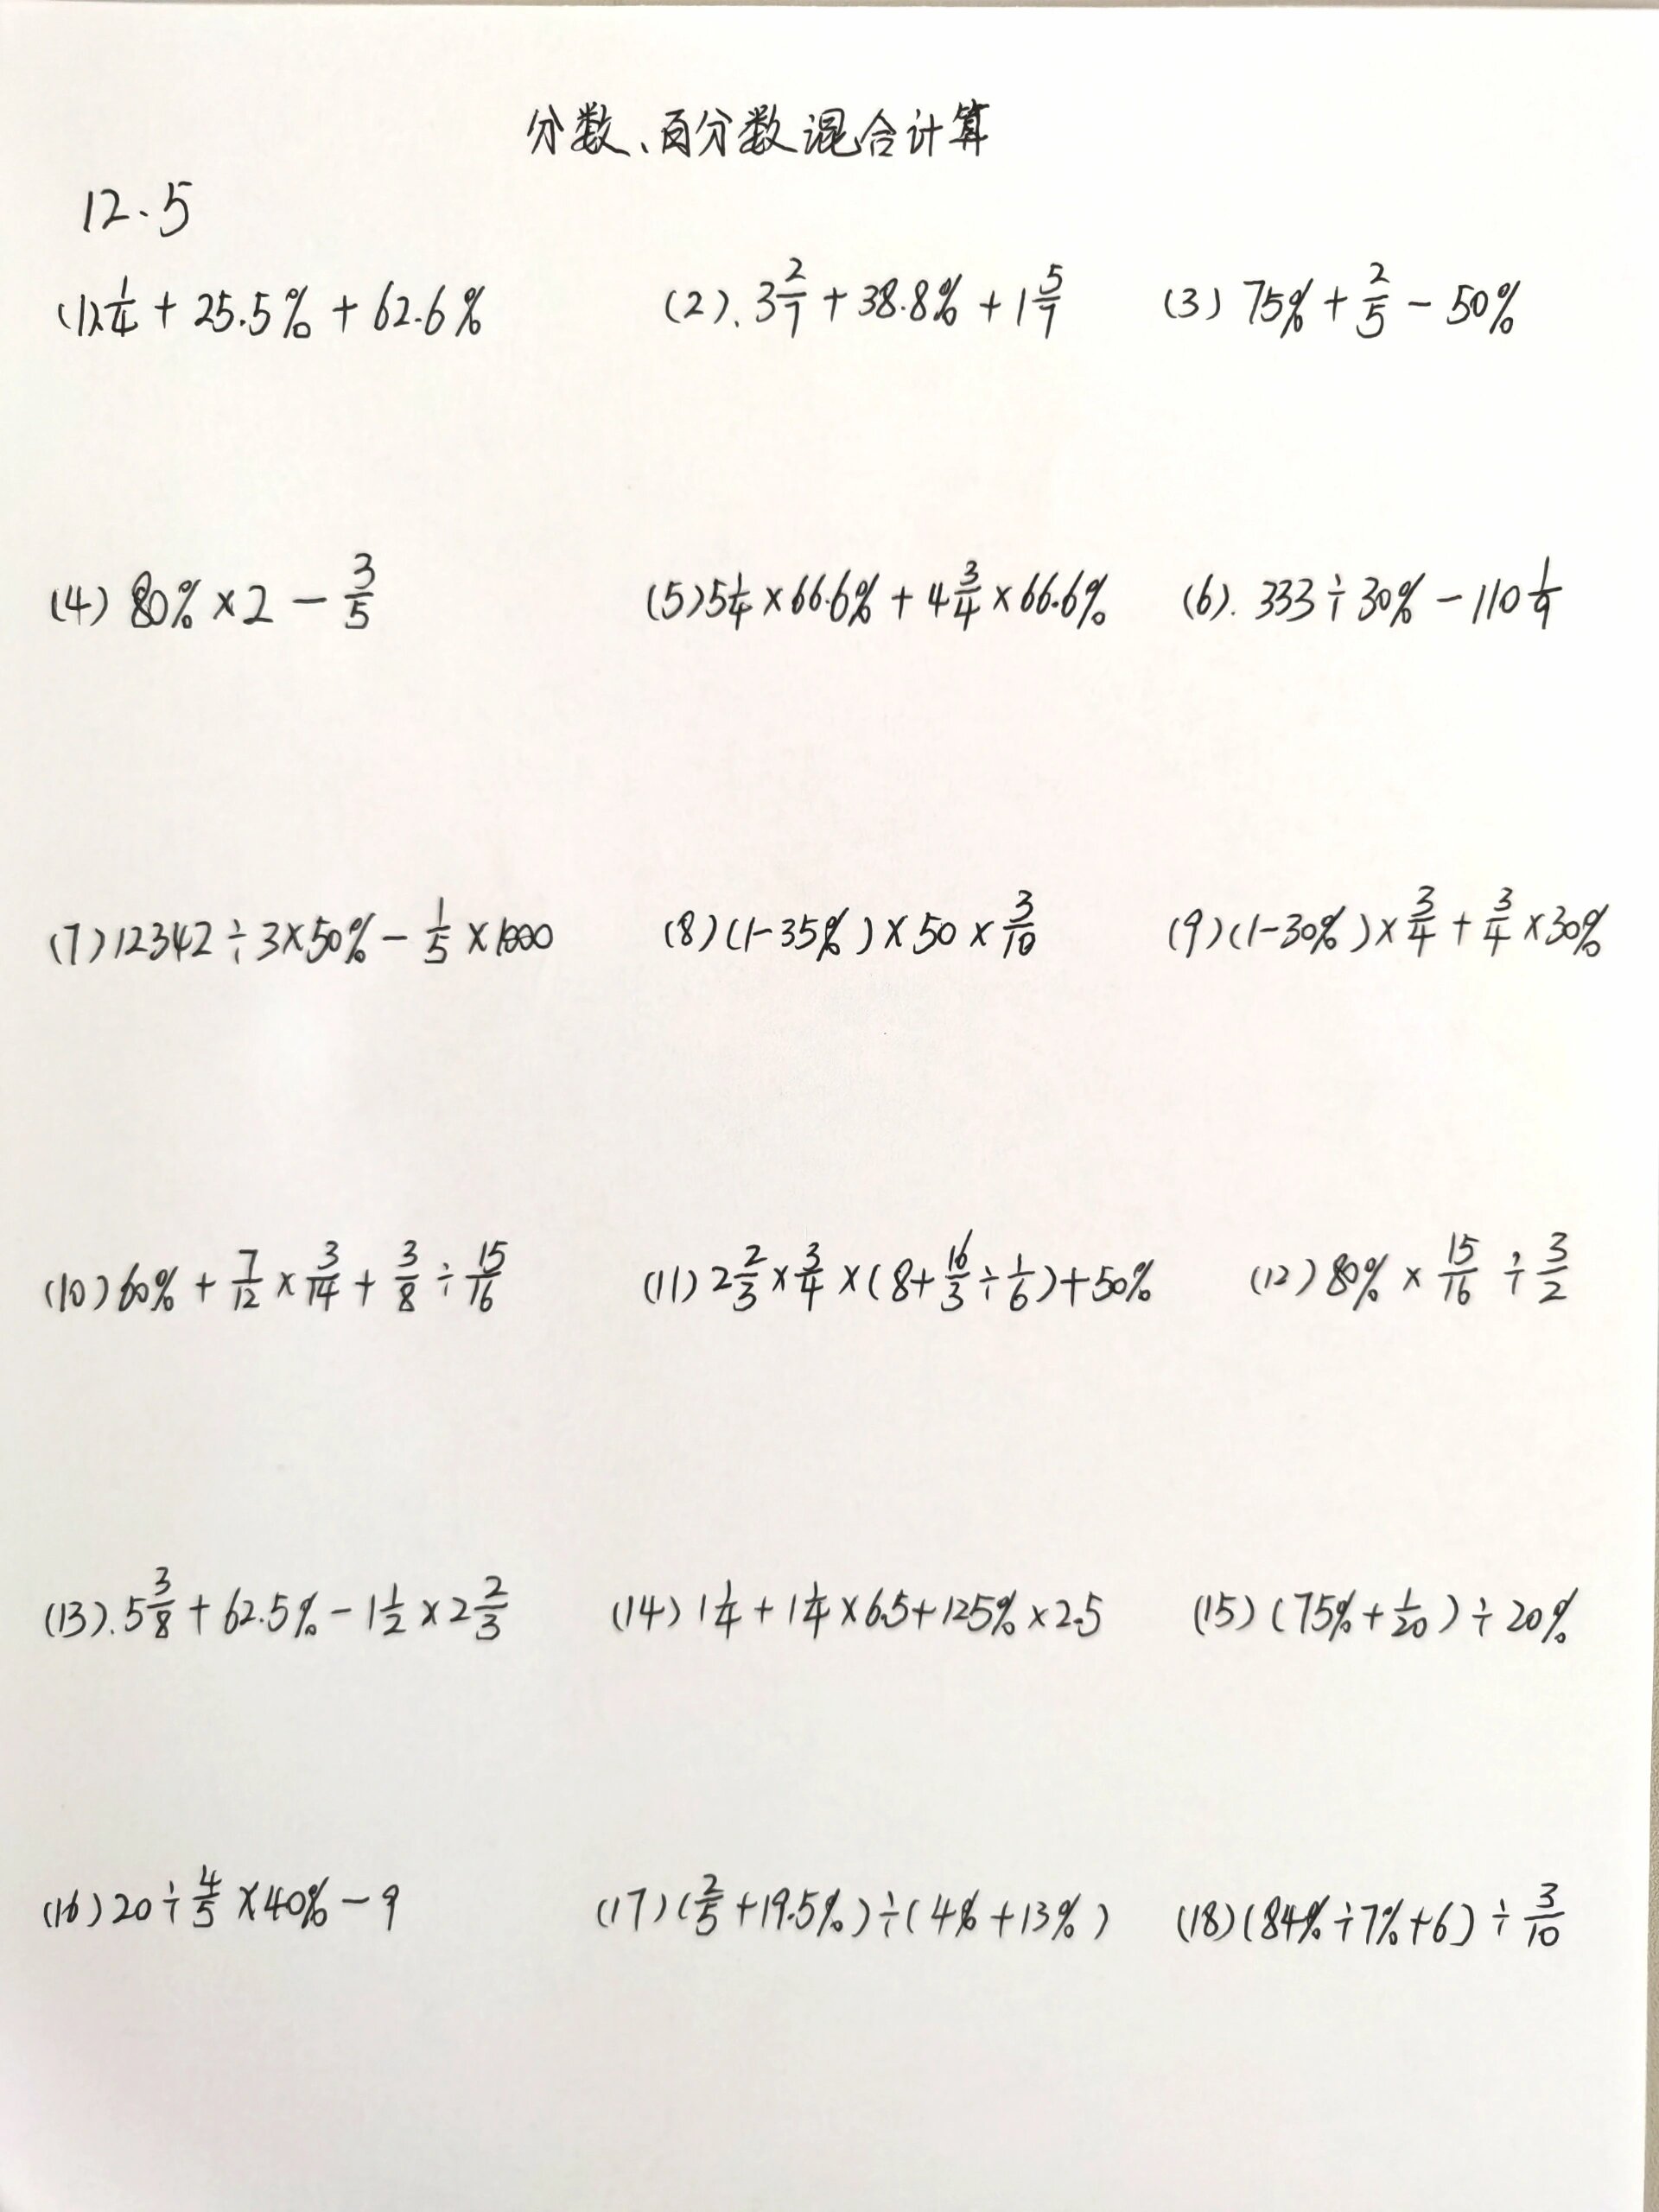 分数、百分数混合计算
12.5
(1) 1/4 + 25.5% + 62.6% (2). 3 2/7 + 38.8% + 1 5/7 (3) 75% + 2/5 - 50%
(4) 80% × 2 - 3/5 (5) 5 1/4 × 66.6% + 4 3/4 × 66.6% (6). 333 ÷ 30% - 110 1/9
(7) 12342 ÷ 3 × 50% - 1/5 × 1000 (8) (1-35%) × 50 × 3/10 (9) (1-30%) × 3/4 + 3/4 × 30%
(10) 60% + 7/12 × 3/14 + 3/8 ÷ 15/16 (11) 2 2/3 × 3/4 × (8 + 16/3 ÷ 1/6) + 50% (12) 80% × 15/16 ÷ 3/2
(13). 5 3/8 + 62.5% - 1 1/2 × 2 2/3 (14) 1 1/4 + 1 1/4 × 6.5 + 125% × 2.5 (15) (75% + 1/20) ÷ 20%
(16) 20 ÷ 4/5 × 40% - 9 (17) (2/5 + 19.5%) ÷ (4% + 13%) (18) (84% ÷ 7% + 6) ÷ 3/10